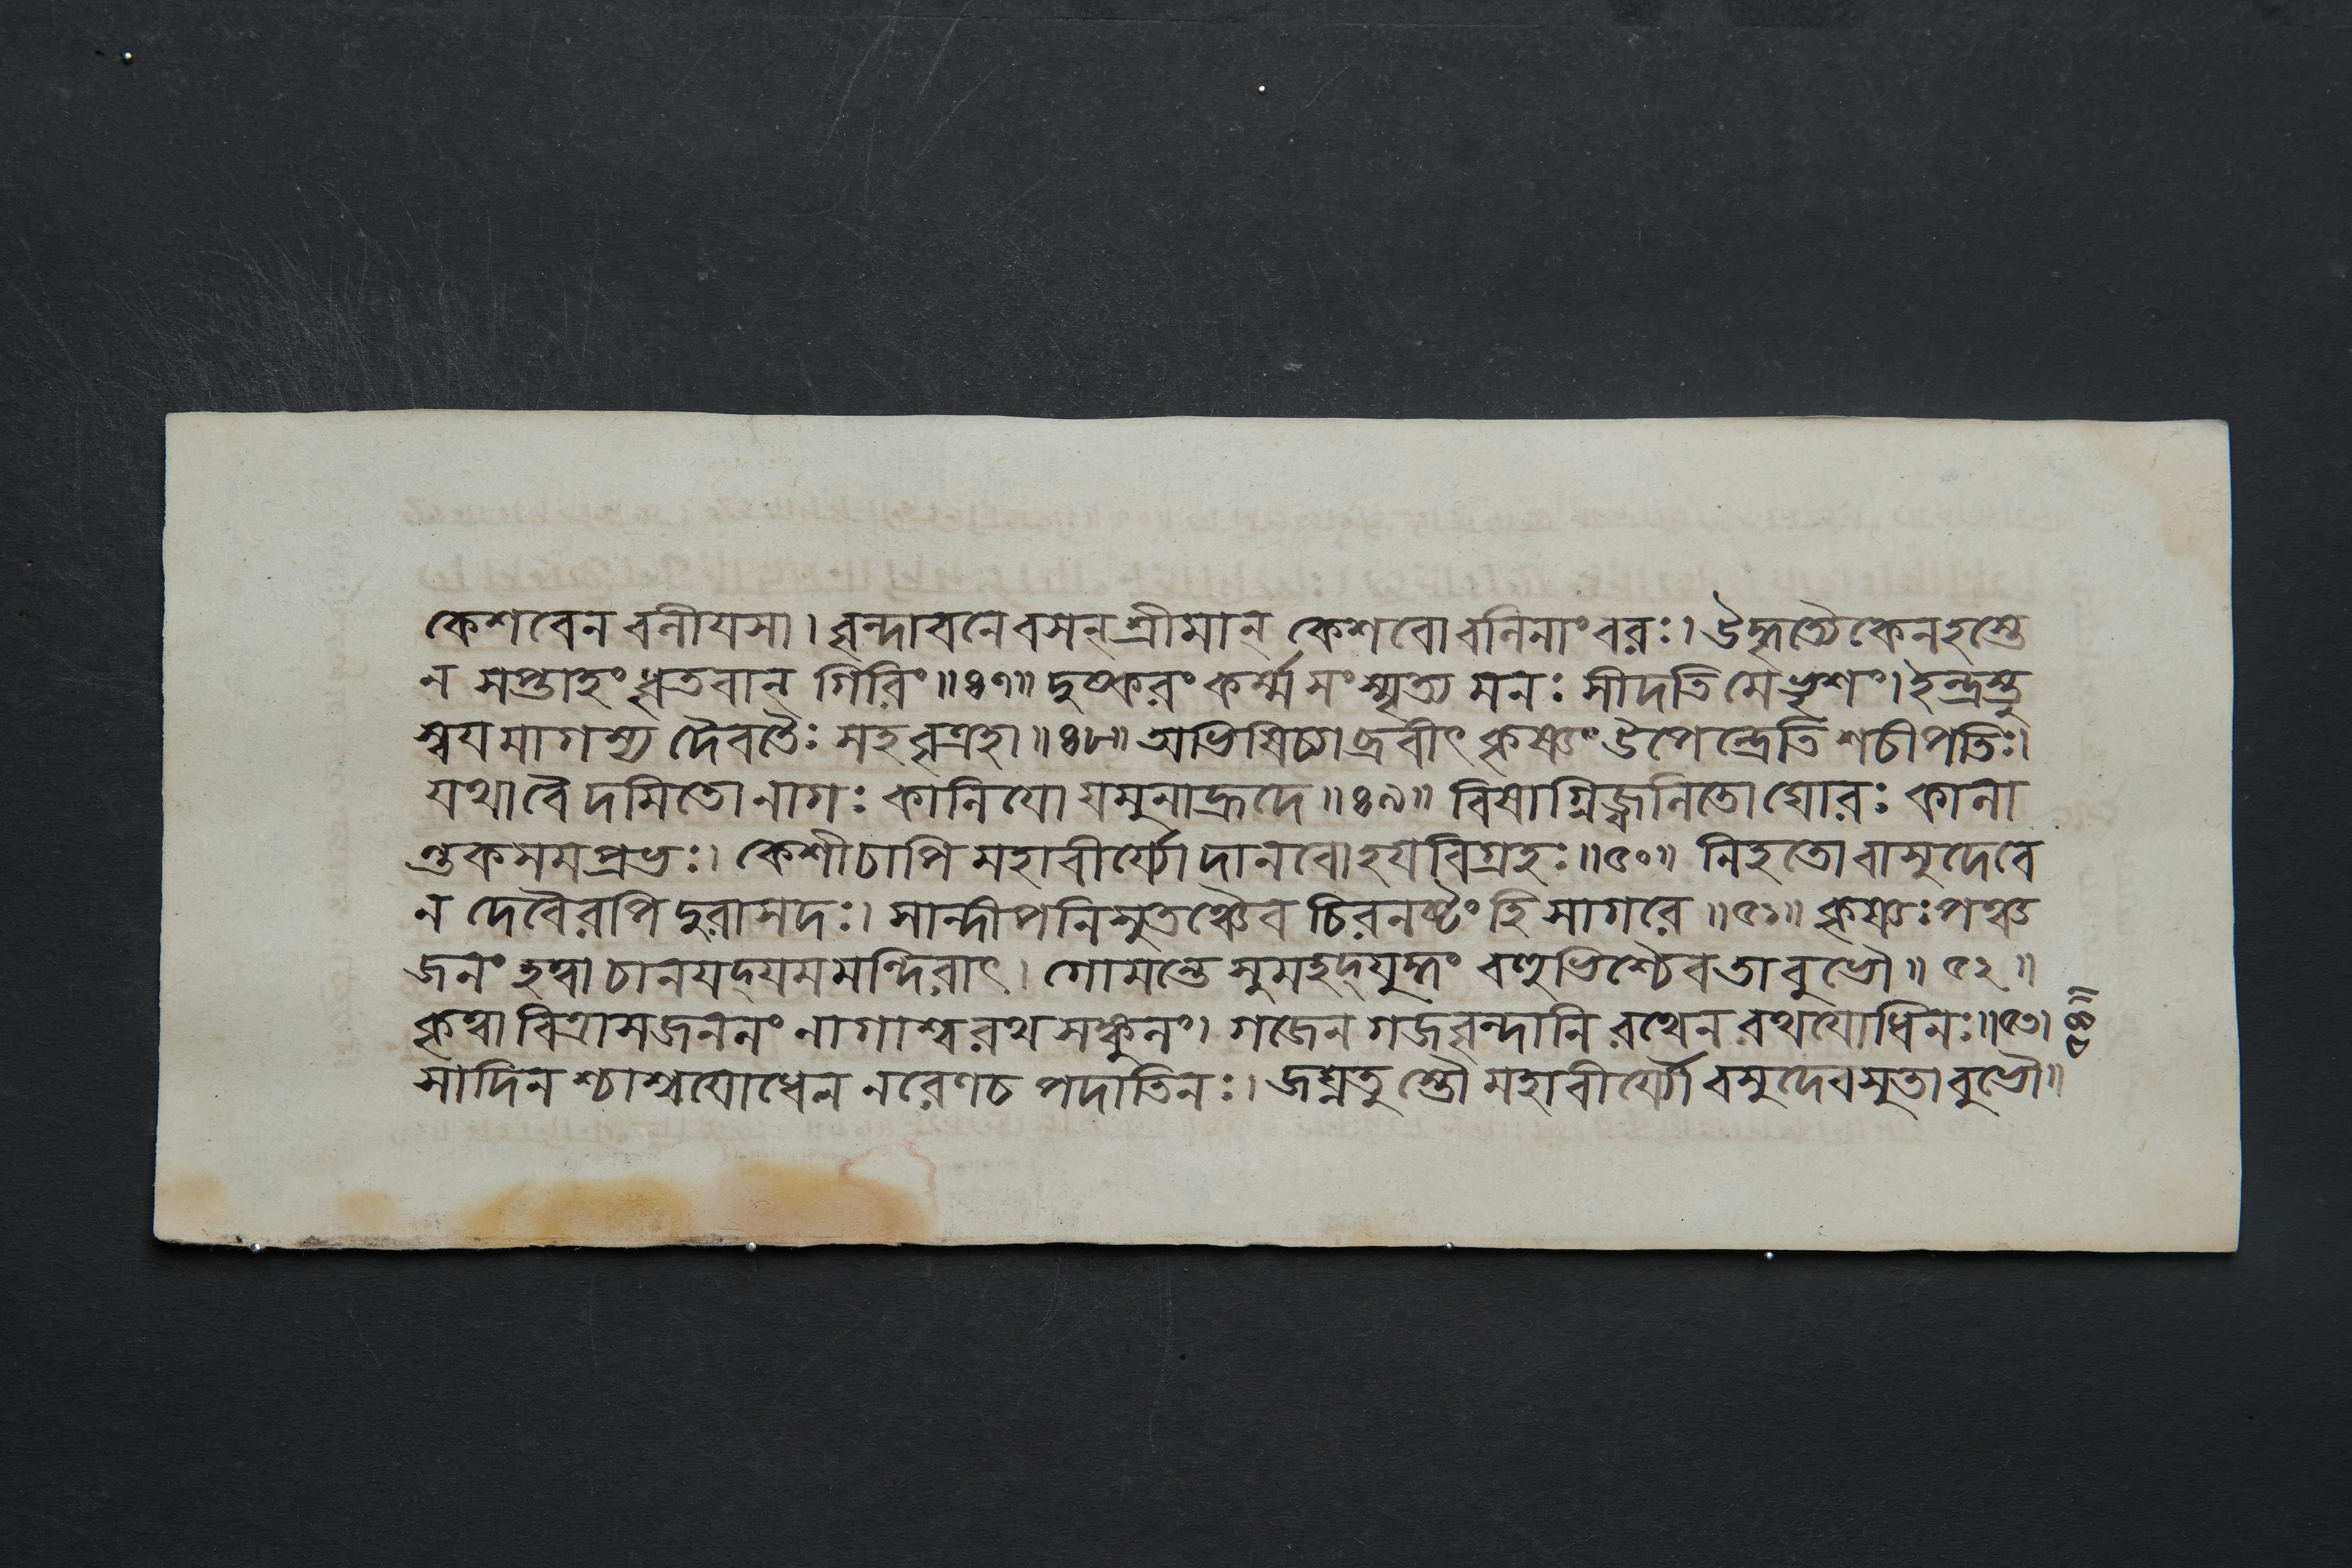 কেশবেন বলীযসা। বৃন্দাবনে বসন্ শ্রীমান্ কেশবো বলিনাং বরঃ। উদ্ধৃত্যৈকেনহস্তে
ন সপ্তাহং ধৃতবান্ গিরিং॥৪৭॥ দুষ্করং কর্ম্ম সংস্মৃত্য মনঃ সীদতি মে ভৃশং। ইন্দ্রস্তু
স্বযমাগম্য দৈবতৈঃ সহ বৃত্রহা॥৪৮॥ অভিষিচ্যাব্রবীৎ কৃষ্ণং উপেন্দ্রেতি শচীপতিঃ।
যথা বৈ দমিতো নাগঃ কালিযো যমুনাহ্রদে॥৪৯॥ বিষাগ্নিজ্বলিতো ঘোরঃ কালা
ন্তকসমপ্রভঃ। কেশী চাপি মহাবীর্য্যো দানবো হযবিগ্রহঃ॥৫০॥ নিহতো বাসুদেবে
ন দেবৈরপি দুরাসদঃ। সান্দীপনিসুতঞ্চৈব চিরনষ্টং হি সাগরে॥৫১॥ কৃষ্ণঃ পঞ্চ
জনং হত্বা চানযদ্যমমন্দিরাৎ। গোমন্তে সুমহদ্যুদ্ধং বহুভিশ্চৈব তাবুভৌ॥৫২॥
কৃত্বা বিত্রাসজননং নাগাশ্বরথসঙ্কুলং। গজেন গজবৃন্দানি রথেন রথযোধিনঃ॥৫৩।
সাদিনশ্চাশ্বযোধেন নরেণ চ পদাতিনঃ। জঘ্নতুস্তৌ মহাবীর্য্যৌ বসুদেবসুতাবুভৌ॥